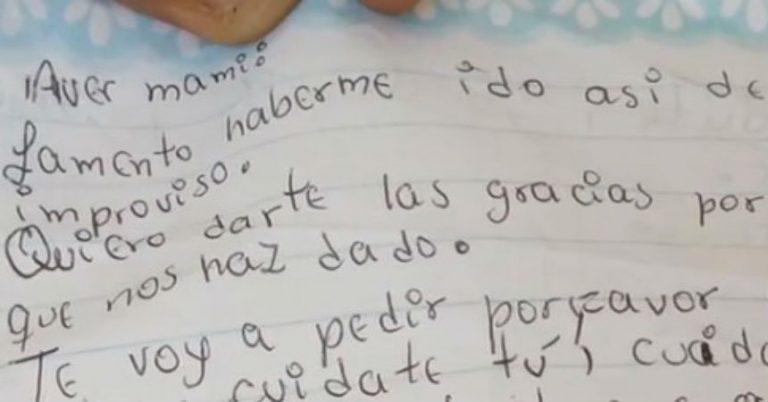 Aver mami:
Lamento haberme ido asi de
improviso.
Quiero darte las gracias por
que nos haz dado.
Te voy a pedir porfavor
cuidate tú, cuida